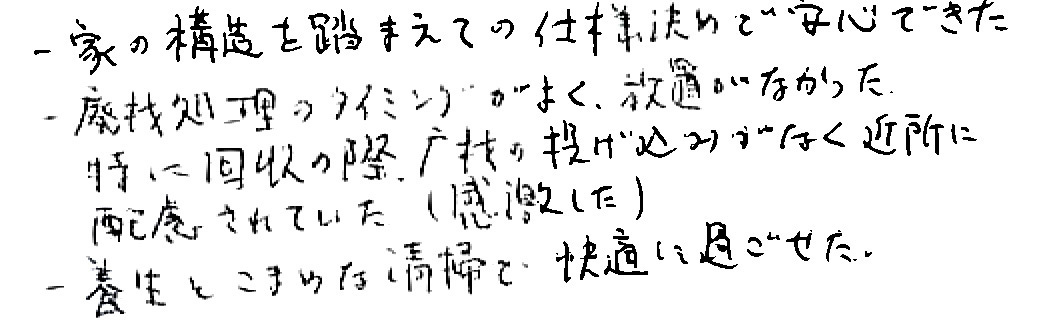 - 家の構造を踏まえての仕様決めで安心できた
- 廃材処理のタイミングがよく、放置がなかった。
特に回収の際、广材の投げ込みがなく近所に
配慮されていた（感激した）
- 養生とこまめな清掃で快適に過ごせた。